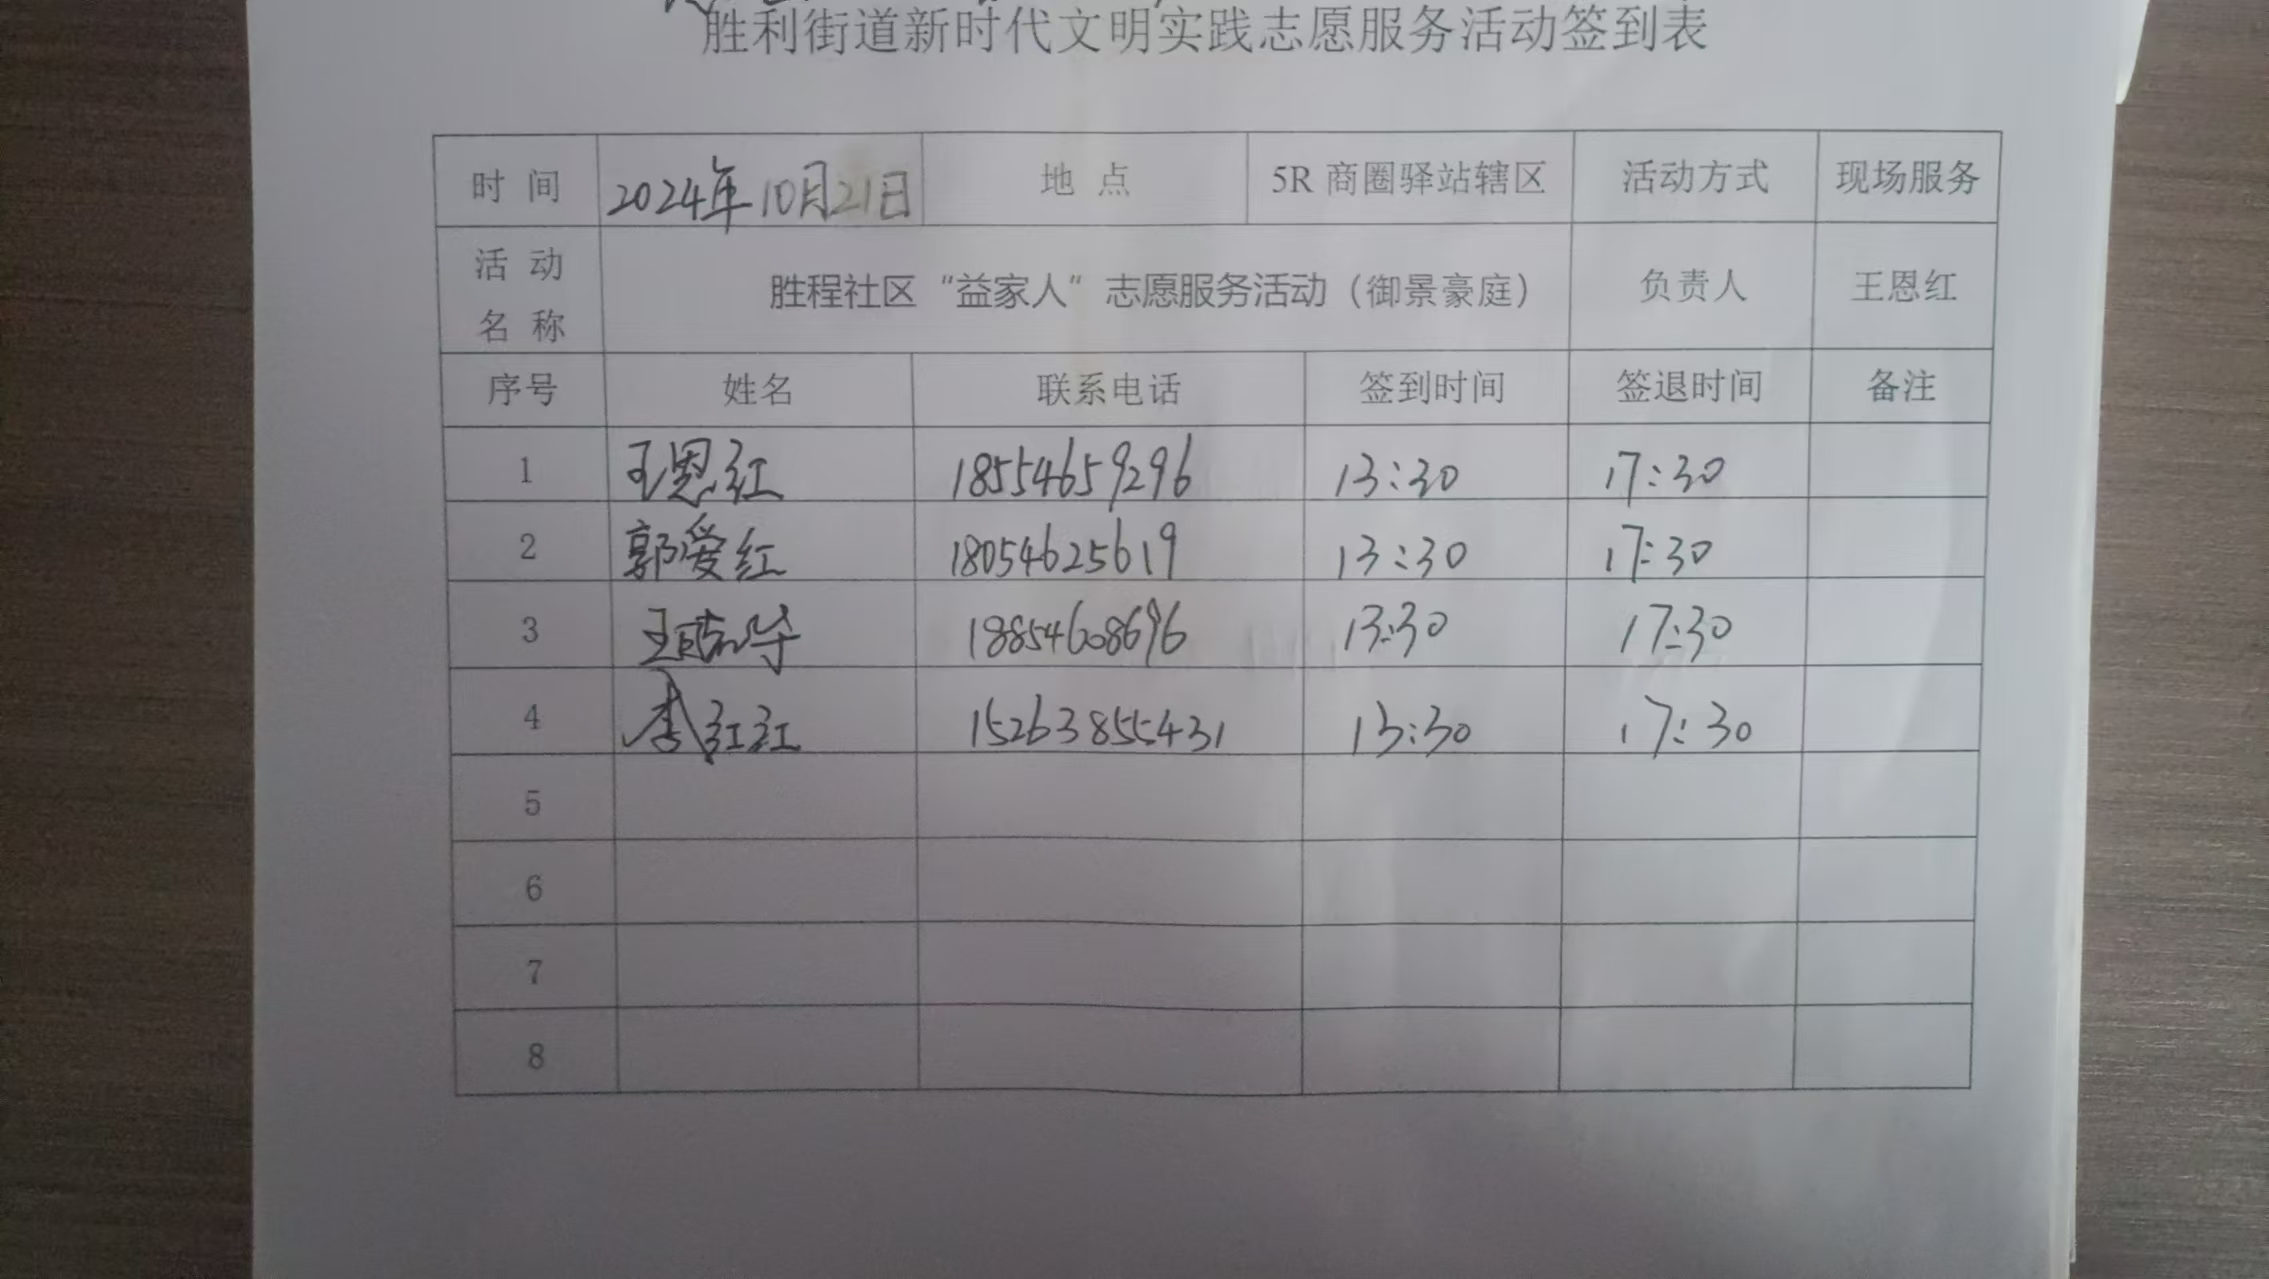 胜利街道新时代文明实践志愿服务活动签到表
时间 2024年10月21日 地点 5R商圈驿站辖区 活动方式 现场服务
活动名称 胜程社区“益家人”志愿服务活动（御景豪庭） 负责人 王恩红
序号 姓名 联系电话 签到时间 签退时间 备注
1 王恩红 18554659296 13:30 17:30
2 郭爱红 18054625619 13:30 17:30
3 18854608696 13:30 17:30
4 李红红 15263855431 13:30 17:30
5
6
7
8